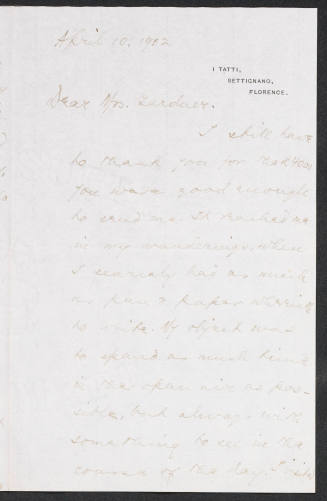 April 10, 1902
I TATTI,
SETTIGNANO,
FLORENCE.
Dear Mrs. Gardner.
I still have
to thank you for
you were good enough
to send me. It reached me
in my wanderings, when
I scarcely had as much
as pen & paper
to write. My object was
to spend as much time
in the open air as pos-
sible, but always with
something to see in the
course of the day.